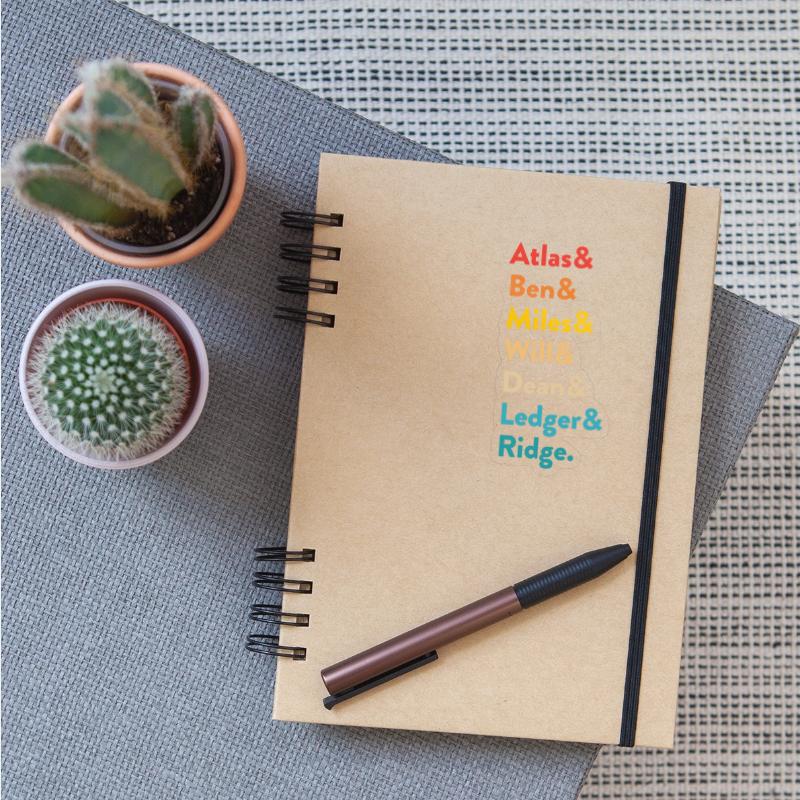 Atlas&
Ben&
Miles&
Will&
Dean&
Ledger&
Ridge.